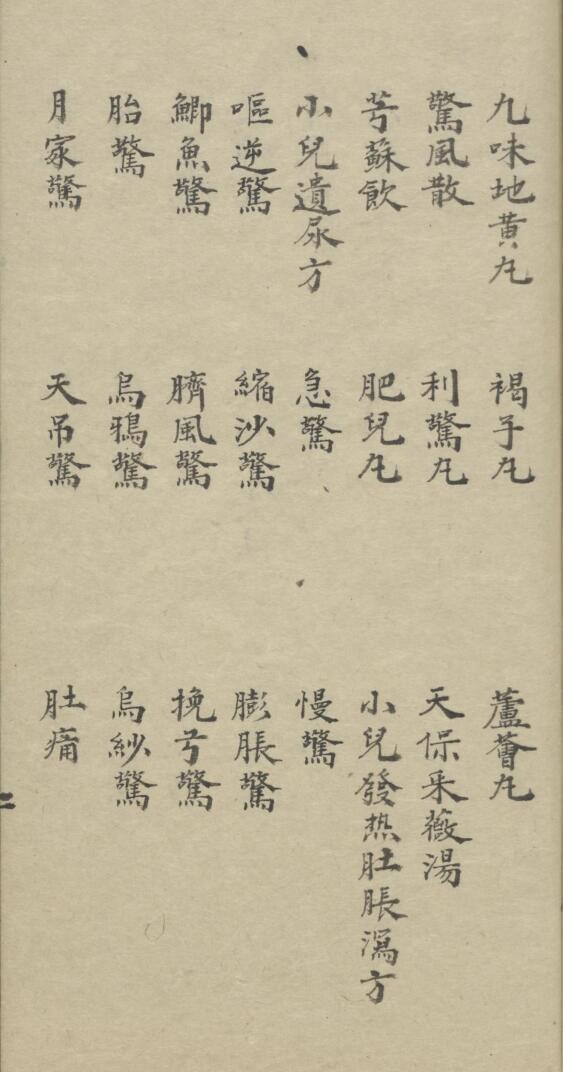 九味地黄丸　褐子丸　蘆薈丸
驚風散　利驚丸　天保采薇湯
芎蘇飲　肥兒丸　小兒發热肚脹瀉方
小兒遺尿方　急驚　慢驚
嘔逆驚　縮沙驚　膨脹驚
鯽魚驚　臍風驚　挽弓驚
胎驚　烏鴉驚　烏紗驚
月家驚　天吊驚　肚痛
二